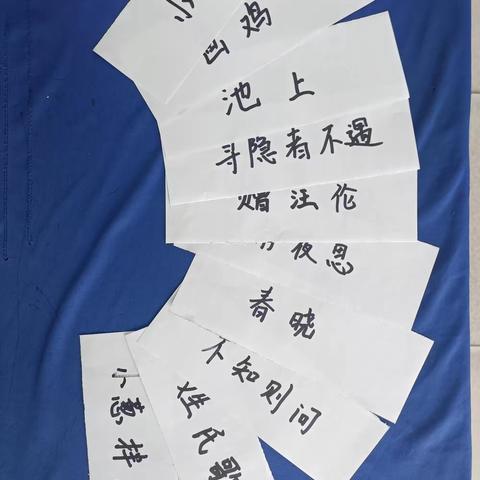 画鸡
池上
寻隐者不遇
赠汪伦
夜思
春晓
不知则问
姓氏歌
小葱拌